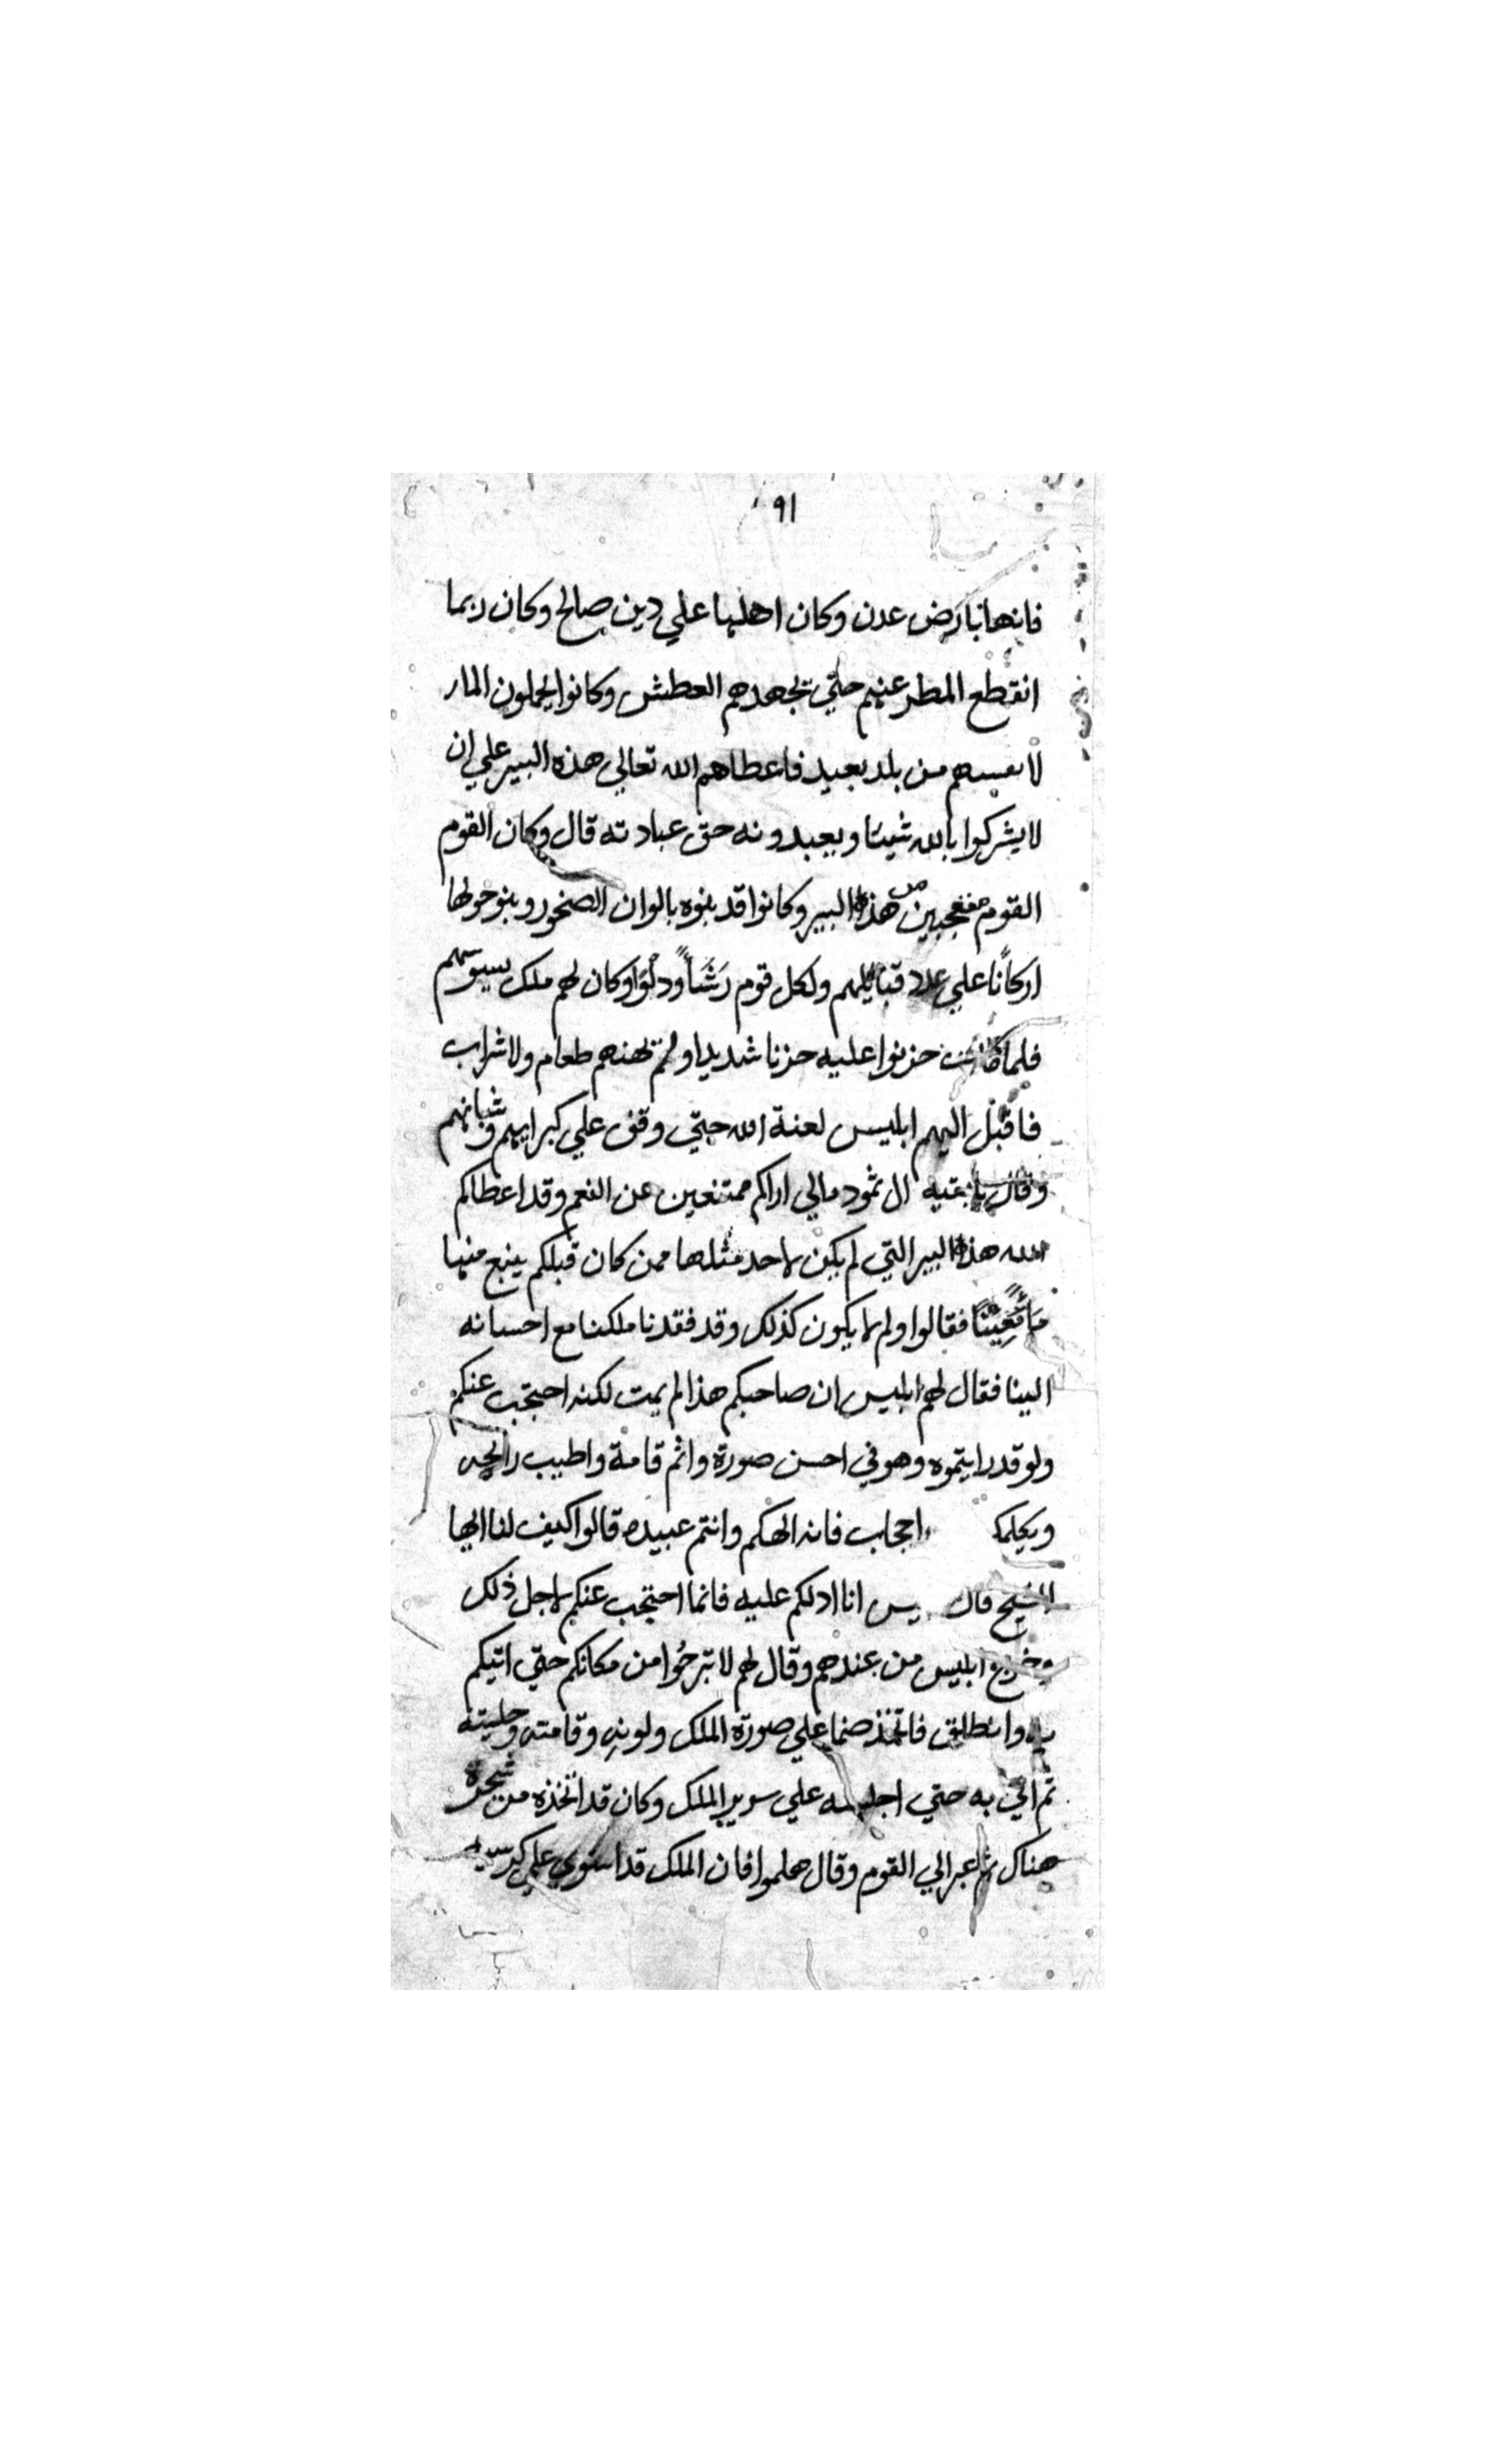 ٩١
فانها بارض عدن وكان اهلها علي دين صالح وكان ربما
انقطع المطر عنهم حتي يجهدهم العطش وكانوا يحملون الماء
لانفسهم من بلد بعيد فاعطاهم الله تعالي هذه البير علي ان
لا يشركوا بالله شيئا ويعبدونه حق عبادته قال وكان القوم
القوم معجبين من هذه البير وكانوا قد بنوه بالوان الصخور وبنو حولها
اركانًا علي عدد قبائلهم ولكل قوم رَشَأً ودلْوًا وكان لهم ملك يسوسهم
فلما مات حزنوا عليه حزنا شديدا ولم يهنهم طعام ولا شراب
فاقبل اليهم ابليس لعنة الله حتي وقف علي كبرايهم وشبانهم
وقال يا بقيه ال ثمود مالي اراكم ممتنعين عن النعم وقد اعطاكم
الله هذه البير التي لم يكن لاحد مثلها ممن كان قبلكم ينبع منها
مَاءً مَعِينًا فقالوا ولم لا يكون كذلك وقد فقدنا ملكنا مع احسانه
الينا فقال لهم ابليس ان صاحبكم هذا لم يمت لكنه احتجب عنكم
ولو قد رايتموه وهو في احسن صورة واتم قامة واطيب رايحه
ويكلمكم حجاب فانه الهكم وانتم عبيده قالوا كيف لنا ايها
الشيخ قال انا ادلكم عليه فانما احتجب عنكم لاجل ذلك
وخرج ابليس من عندهم وقال لهم لا تبرحُوا من مكانكم حتي اتيكم
به وانطلق فاتخذ صنما علي صورة الملك ولونه وقامته وحليته
ثم اتي به حتي اجلسه علي سرير الملك وكان قد اتخذه من شجرة
هناك ثم عبر الي القوم وقال هلموا فان الملك قد استوي علي كرسيه